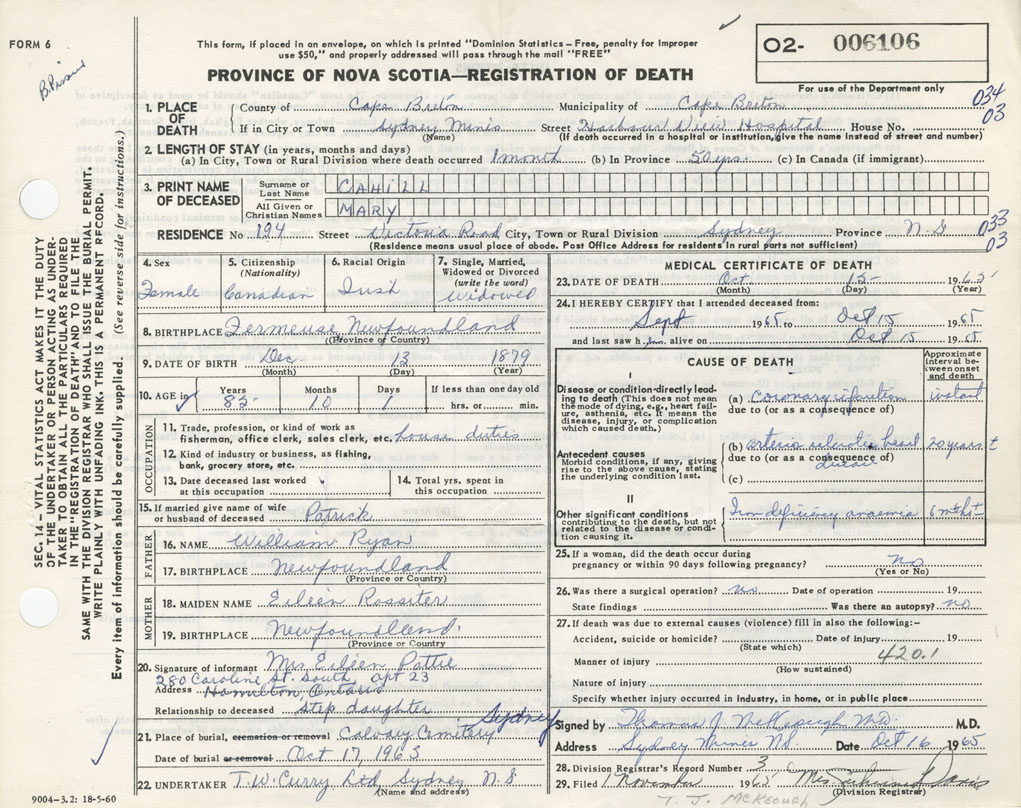 FORM 6
B. 
This form, if placed in an envelope, on which is printed "Dominion Statistics – Free, penalty for improper
use $50," and properly addressed will pass through the mail "FREE"
PROVINCE OF NOVA SCOTIA—REGISTRATION OF DEATH
O2- 006106
For use of the Department only
034
03
1. PLACE OF DEATH { County of Cape Breton Municipality of Cape Breton
If in City or Town Sydney Mines Street Harbour View Hospital House No.
(Name) (If death occurred in a hospital or institution, give its name instead of street and number)
2. LENGTH OF STAY (in years, months and days)
(a) In City, Town or Rural Division where death occurred 1 month (b) In Province 50 yrs. (c) In Canada (if immigrant)
3. PRINT NAME OF DECEASED
Surname or Last Name CAHILL
All Given or Christian Names MARY
RESIDENCE No 194 Street Victoria Road City, Town or Rural Division Sydney Province N.S
033
03
(Residence means usual place of abode. Post Office Address for residents in rural parts not sufficient)
4. Sex
Female
5. Citizenship
(Nationality)
Canadian
6. Racial Origin
Irish
7. Single, Married,
Widowed or Divorced
(write the word)
Widowed
8. BIRTHPLACE Fermeuse Newfoundland
(Province or Country)
9. DATE OF BIRTH Dec. 13 1879
(Month) (Day) (Year)
10. AGE in Years Months Days If less than one day old
85 10 1 hrs. or min.
OCCUPATION
11. Trade, profession, or kind of work as
fisherman, office clerk, sales clerk, etc. house duties
12. Kind of industry or business, as fishing,
bank, grocery store, etc.
13. Date deceased last worked
at this occupation
14. Total yrs. spent in
this occupation
15. If married give name of wife
or husband of deceased Patrick
FATHER
16. NAME William Ryan
17. BIRTHPLACE Newfoundland
(Province or Country)
MOTHER
18. MAIDEN NAME Eileen Rossiter
19. BIRTHPLACE Newfoundland.
(Province or Country)
20. Signature of informant Mrs Eileen Pattie
280 Caroline St. South, apt 23
Address Hamilton, Ontario
Relationship to deceased step daughter
21. Place of burial, cremation or removal Calvary Cemetery Sydney
Date of burial or removal Oct 17, 1963
22. UNDERTAKER T.W. Curry Ltd, Sydney, N.S
(Name and address)
9004-3.2: 18-5-60
MEDICAL CERTIFICATE OF DEATH
23. DATE OF DEATH Oct. 15 1965
(Month) (Day) (Year)
24. I HEREBY CERTIFY that I attended deceased from:
Sept 1965 to Oct 15 1965
and last saw h alive on Oct 15 1965
CAUSE OF DEATH
Approximate
interval be-
tween onset
and death
I
Disease or condition directly lead-
ing to death (This does not mean
the mode of dying, e.g., heart fail-
ure, asthenia, etc. It means the
disease, injury, or complication
which caused death.)
(a) coronary instant
due to (or as a consequence of)
Antecedent causes
Morbid conditions, if any, giving
rise to the above cause, stating
the underlying condition last.
(b) arterio sclerotic heart 20 years ±
due to (or as a consequence of)
disease
(c)
II
Other significant conditions
contributing to the death, but not
related to the disease or condi-
tion causing it.
Iron deficiency anaemia 6 mths ±
25. If a woman, did the death occur during
pregnancy or within 90 days following pregnancy? no
(Yes or No)
26. Was there a surgical operation? no Date of operation 19
State findings Was there an autopsy? no
27. If death was due to external causes (violence) fill in also the following:—
Accident, suicide or homicide? Date of injury 19
(State which)
420.1
Manner of injury
(How sustained)
Nature of injury
Specify whether injury occurred in industry, in home, or in public place
Signed by Thomas J McKeough M.D. M.D.
Address Sydney Mines NS Date Oct 16 1965
28. Division Registrar's Record Number 3
29. Filed 1 November 1965 Mrs Davis
(Division Registrar)
T. J. McKEOUGH
SEC. 14 – VITAL STATISTICS ACT MAKES IT THE DUTY
OF THE UNDERTAKER OR PERSON ACTING AS UNDER-
TAKER TO OBTAIN ALL THE PARTICULARS REQUIRED
IN THE "REGISTRATION OF DEATH" AND TO FILE THE
SAME WITH THE DIVISION REGISTRAR WHO SHALL ISSUE THE BURIAL PERMIT.
WRITE PLAINLY WITH UNFADING INK. THIS IS A PERMANENT RECORD.
Every item of information should be carefully supplied. (See reverse side for instructions.)